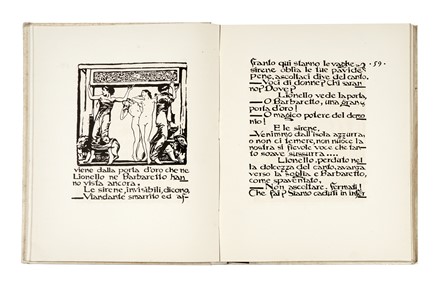 viene dalla porta d'oro che ne
Lionello ne Barbaretto han
no vista ancora.
Le sirene, invisibili, dicono,
— Viandante smarrito ed af-
franto qui starno le vaghe
sirene oblia le tue pavide
pene, ascoltaci dive del canto.
— Voci di donne? Chi saran
no? Dove?
Lionello vede la porta
— O Barbaretto, una gran
porta d'oro!
— O magico potere del demo
nio!
E le sirene,
— Venimmo dall'isola azzurra,
o non ci temere, non nuoce la
nostra si fievole voce che tan-
to soave sussurra....
Lionello, perduto nel
la dolcezza del canto, avanza
verso la soglia e Barbaretto,
come spaventato,
— Non ascoltare, fermati!
Che fai? Siamo caduti in infer
· 59 ·